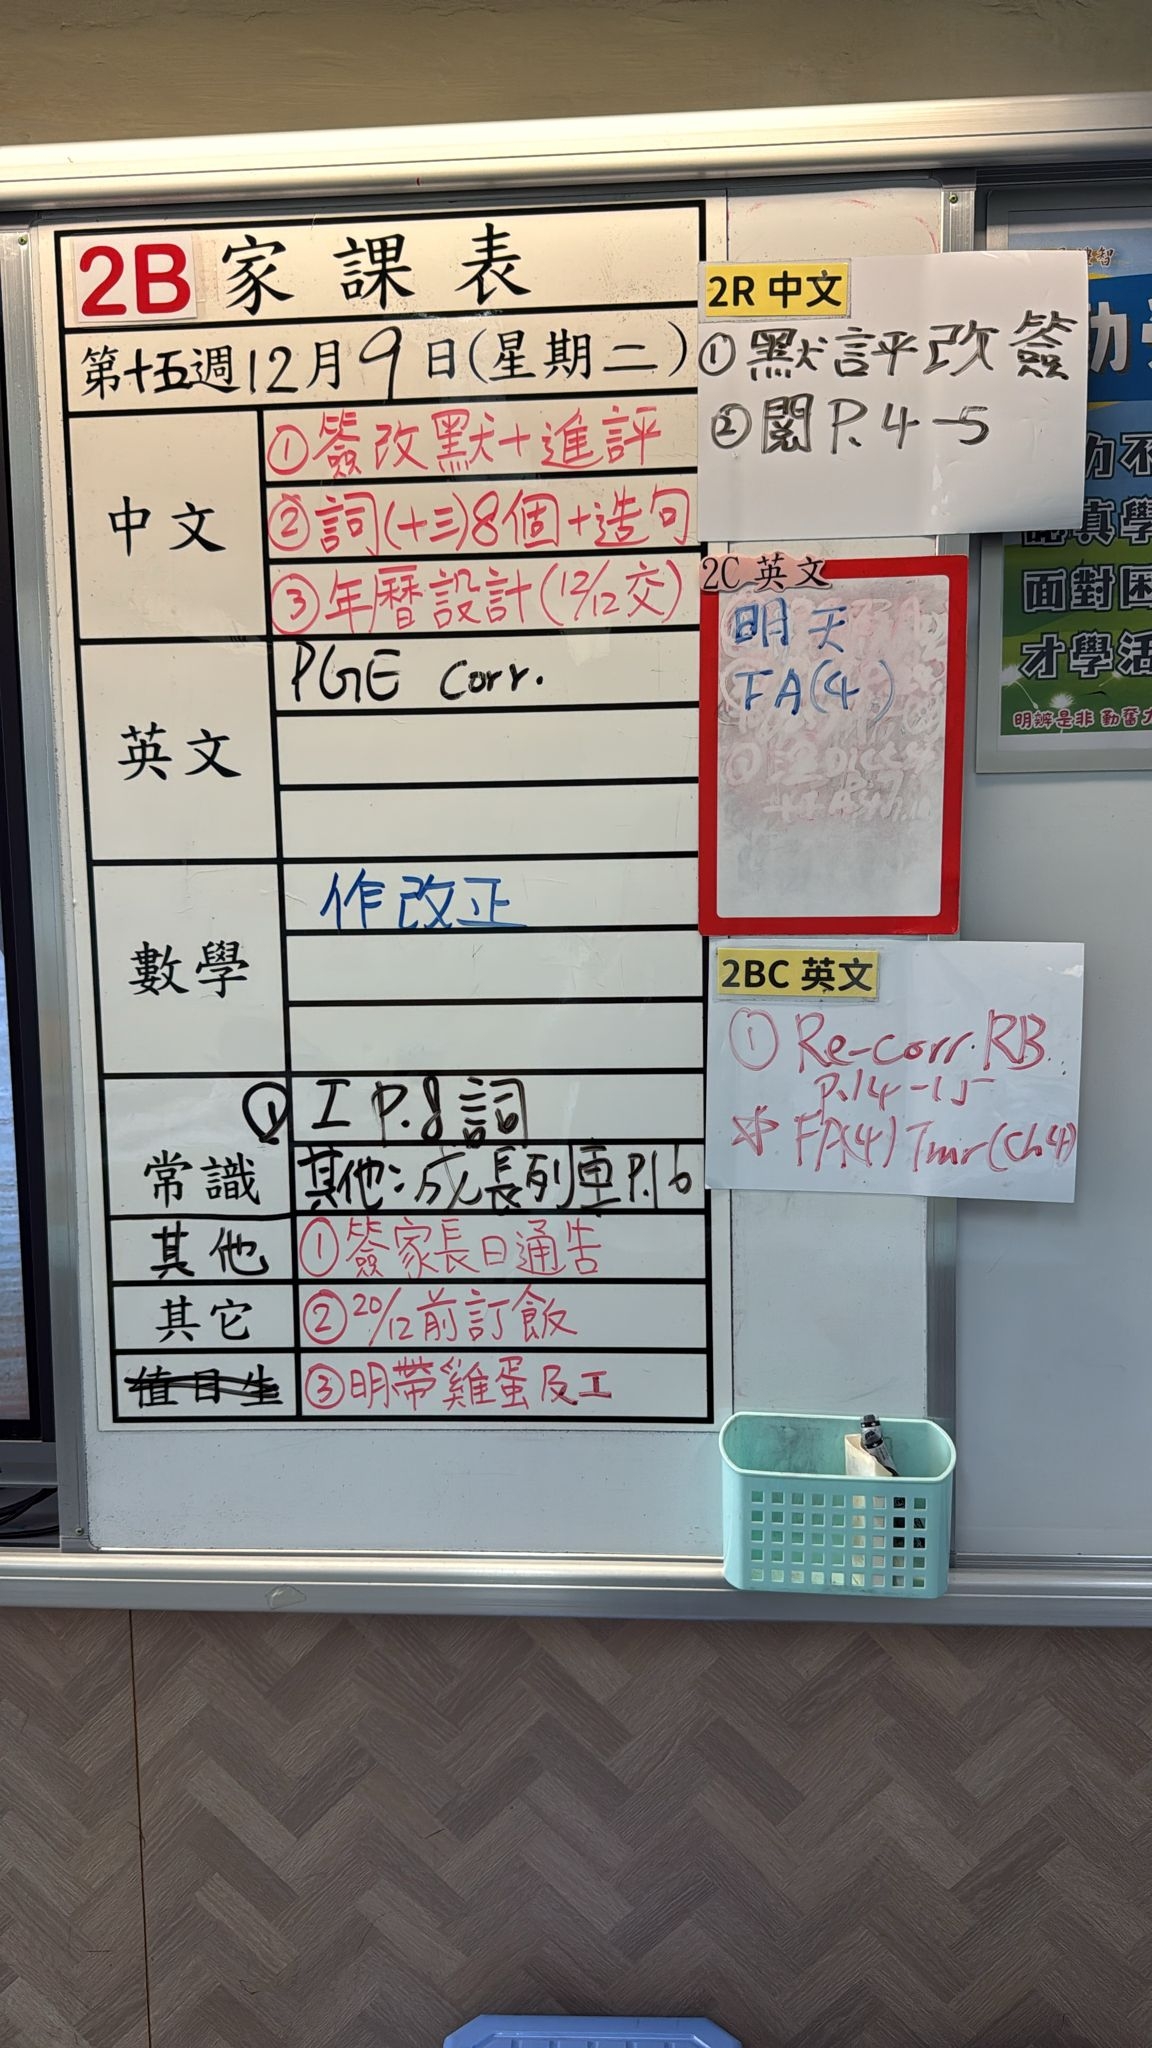 2B 家課表
第十五週12月9日(星期二)
中文
①簽改默+進評
②詞(十三)8個+造句
③年曆設計(12/12交)
英文
PGE corr.
數學
作改正
常識
① I P.8詞
其他:成長列車P.16
其他
①簽家長日通告
其它
②20/12前訂飯
值日生
③明帶雞蛋及工
2R 中文
①默評改簽
②閱P.4-5
2C 英文
明天
FA(4)
2BC 英文
① Re-corr. RB
P.14-15
☆ FA(4) Tmr (Ch4)
面對困
才學活
明辨是非 勤奮